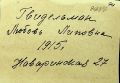 Гвидельман
Любовь Липовна
1915,
Наваринская 27